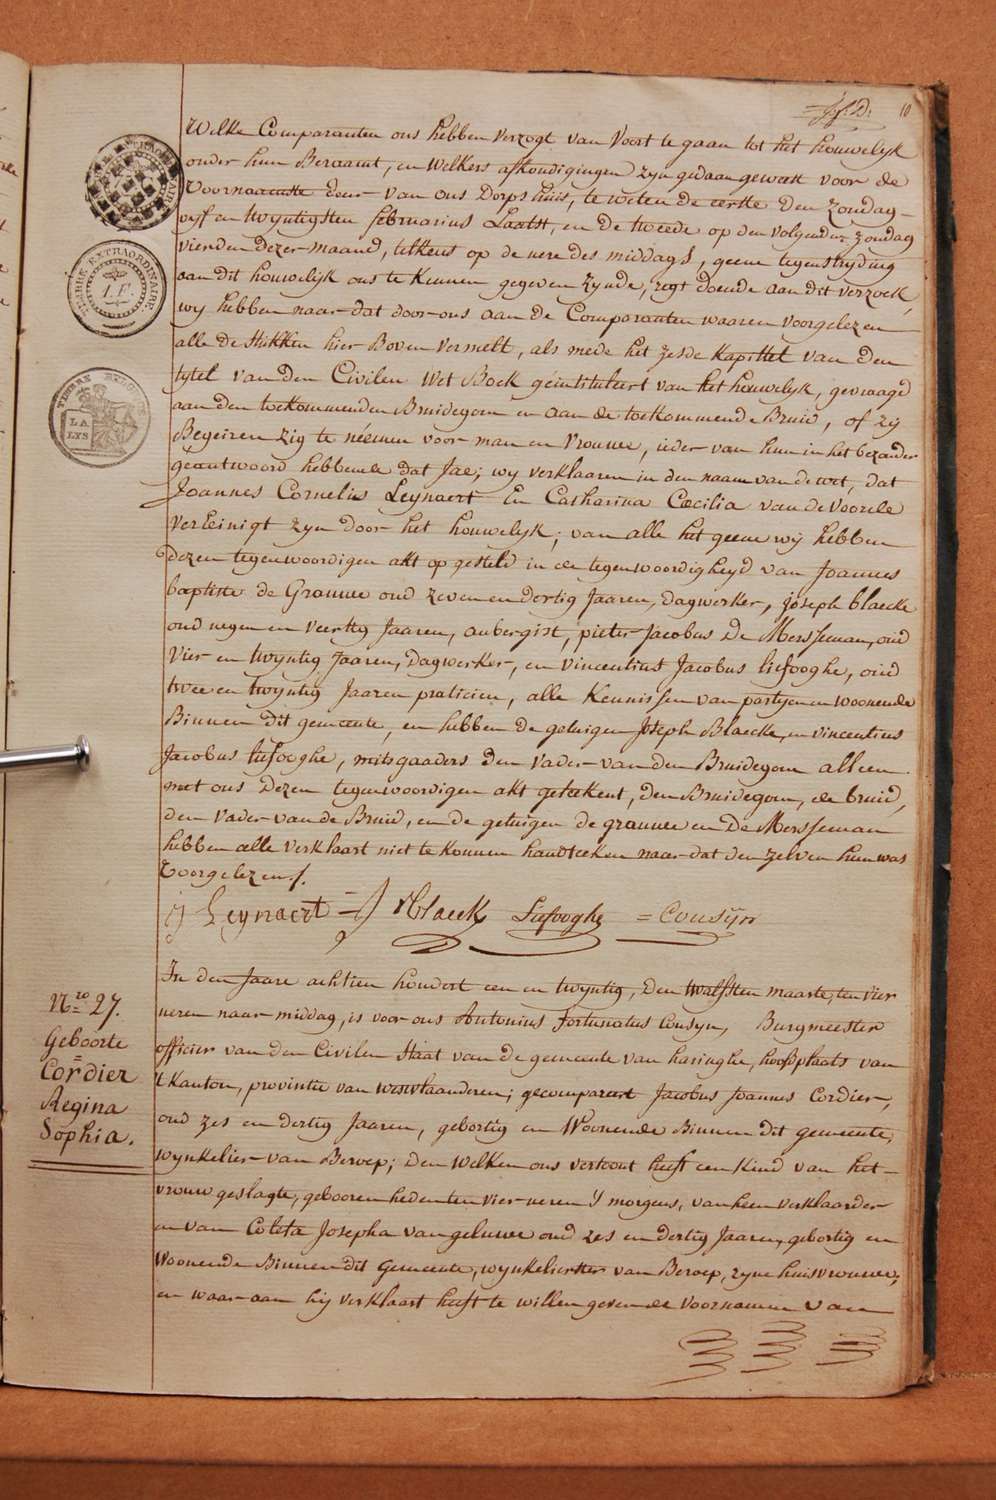 10
Welke Comparanten ons hebben verzogt van voort te gaan tot het houwelyk
onder hun Beraamt, en welkers afkondigingen zyn gedaan geweest voor de
voornaamste deur van ons Dorps huis, te weten de eerste den zondag
vyf en twyntigsten februarius Laatst, en de tweede op den volgenden zondag
vierden dezer maand, telkens op de uere des middags, geene tegenstryding
aan dit houwelijk ons te kennen gegeven zynde, regt doende aan dit verzoek,
wy hebben naar dat door ons aan de Comparanten waaren voorgelezen
alle de stukken hier Boven vermelt, als mede het zesde Kapittel van den
tytel van den Civilen Wet Boek geintituleert van het houwelyk, gevraagd
aan den toekommenden Bruidegom en aan de toekommende Bruid, of zij
Begeiren zig te néemen voor man en vrouwe, ieder van hun in het bezonder
geäntwoord hebbende dat Jae; wy verklaaren in den naam van de wet, dat
Joannes Cornelius Leynaert En Catharina Cæcilia van de Voorde
vereinigt zyn door het houwelyk; van alle het geene wij hebben
dezen tegenwoordigen akt op gesteld in de tegenwoordigheyd van Joannes
baptiste de Grauwe oud zeven en dertig Jaaren, dagwerker, joseph blaecke
oud negen en veertig Jaaren, aubergist, pieter Jacobus De Mersseman, oud
vier en twyntig Jaaren, Dagwerker, en vincentius Jacobus liefooghe, oud
twee en twyntig Jaaren praticien, alle kennissen van partyen en woonende
Binnen dit gemeente, en hebben de getuigen Joseph Blaecke, en vincentius
Jacobus liefooghe, mitsgaaders den vader van den Bruidegom alleen
met ons dezen tegenwoordigen akt geteekent, den Bruidegom, de bruid,
den vader van de Bruid, en de getuigen de grauwe en De Mersseman
hebben alle verklaart niet te konnen handteeken naar dat den zelven hun was
voorgelezen/.
Leynaert Blaecke Liefooghe = Cousÿn
Nro 27.
Geboorte
=
Cordier
Regina
Sophia.
In den Jaare achtien hondert een en twyntig, den twalfsten maarte, ten vier
ueren naar middag, is voor ons Antonius Fortunatus Cousyn, Burgmeester
officier van den Civilen Staat van de gemeente van haringhe, hoofdplaats van
't Kanton, provintie van westvlaanderen; gecompareert Jacobus Joannes Cordier,
oud zes en dertig Jaaren, gebortig en Woonende Binnen dit gemeente,
wynkelier van Beroep; den welken ons vertoont heeft een kind van het
vrouw geslagte, gebooren heden ten vier ueren s'morgens, van hem verklaarder
en van Coleta Josepha van geluwe oud zes en dertig Jaaren, gebortig en
Woonende Binnen dit Gemeente, wynkelierster van Beroep, zyne huisvrouwe,
en waar aan hij verklaart heeft te willen geven de voornamen van
TIMBRE EXTRAORDINAIRE
1 F.
TIMBRE ROYAL
LA
LYS